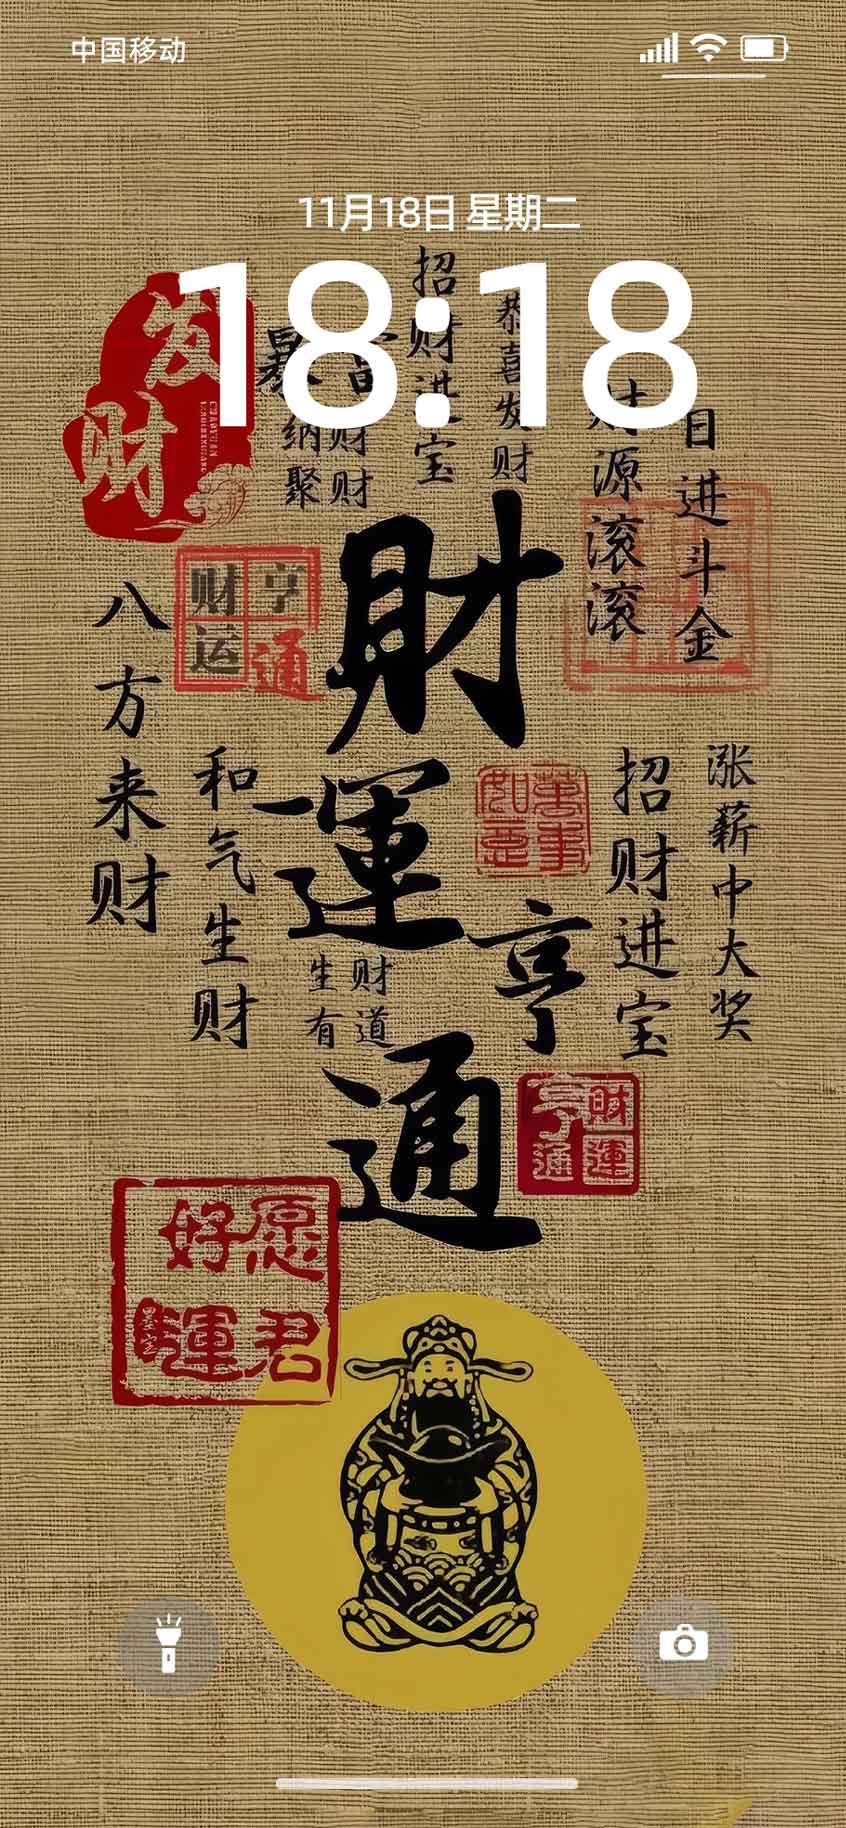 中国移动
11月18日 星期二
18:18
发财
招财进宝
恭喜发财
暴富
纳财
聚财
财源滚滚
日进斗金
财运亨通
財運亨通
八方来财
和气生财
生财有道
萬事如意
招财进宝
涨薪中大奖
財運亨通
愿君好運